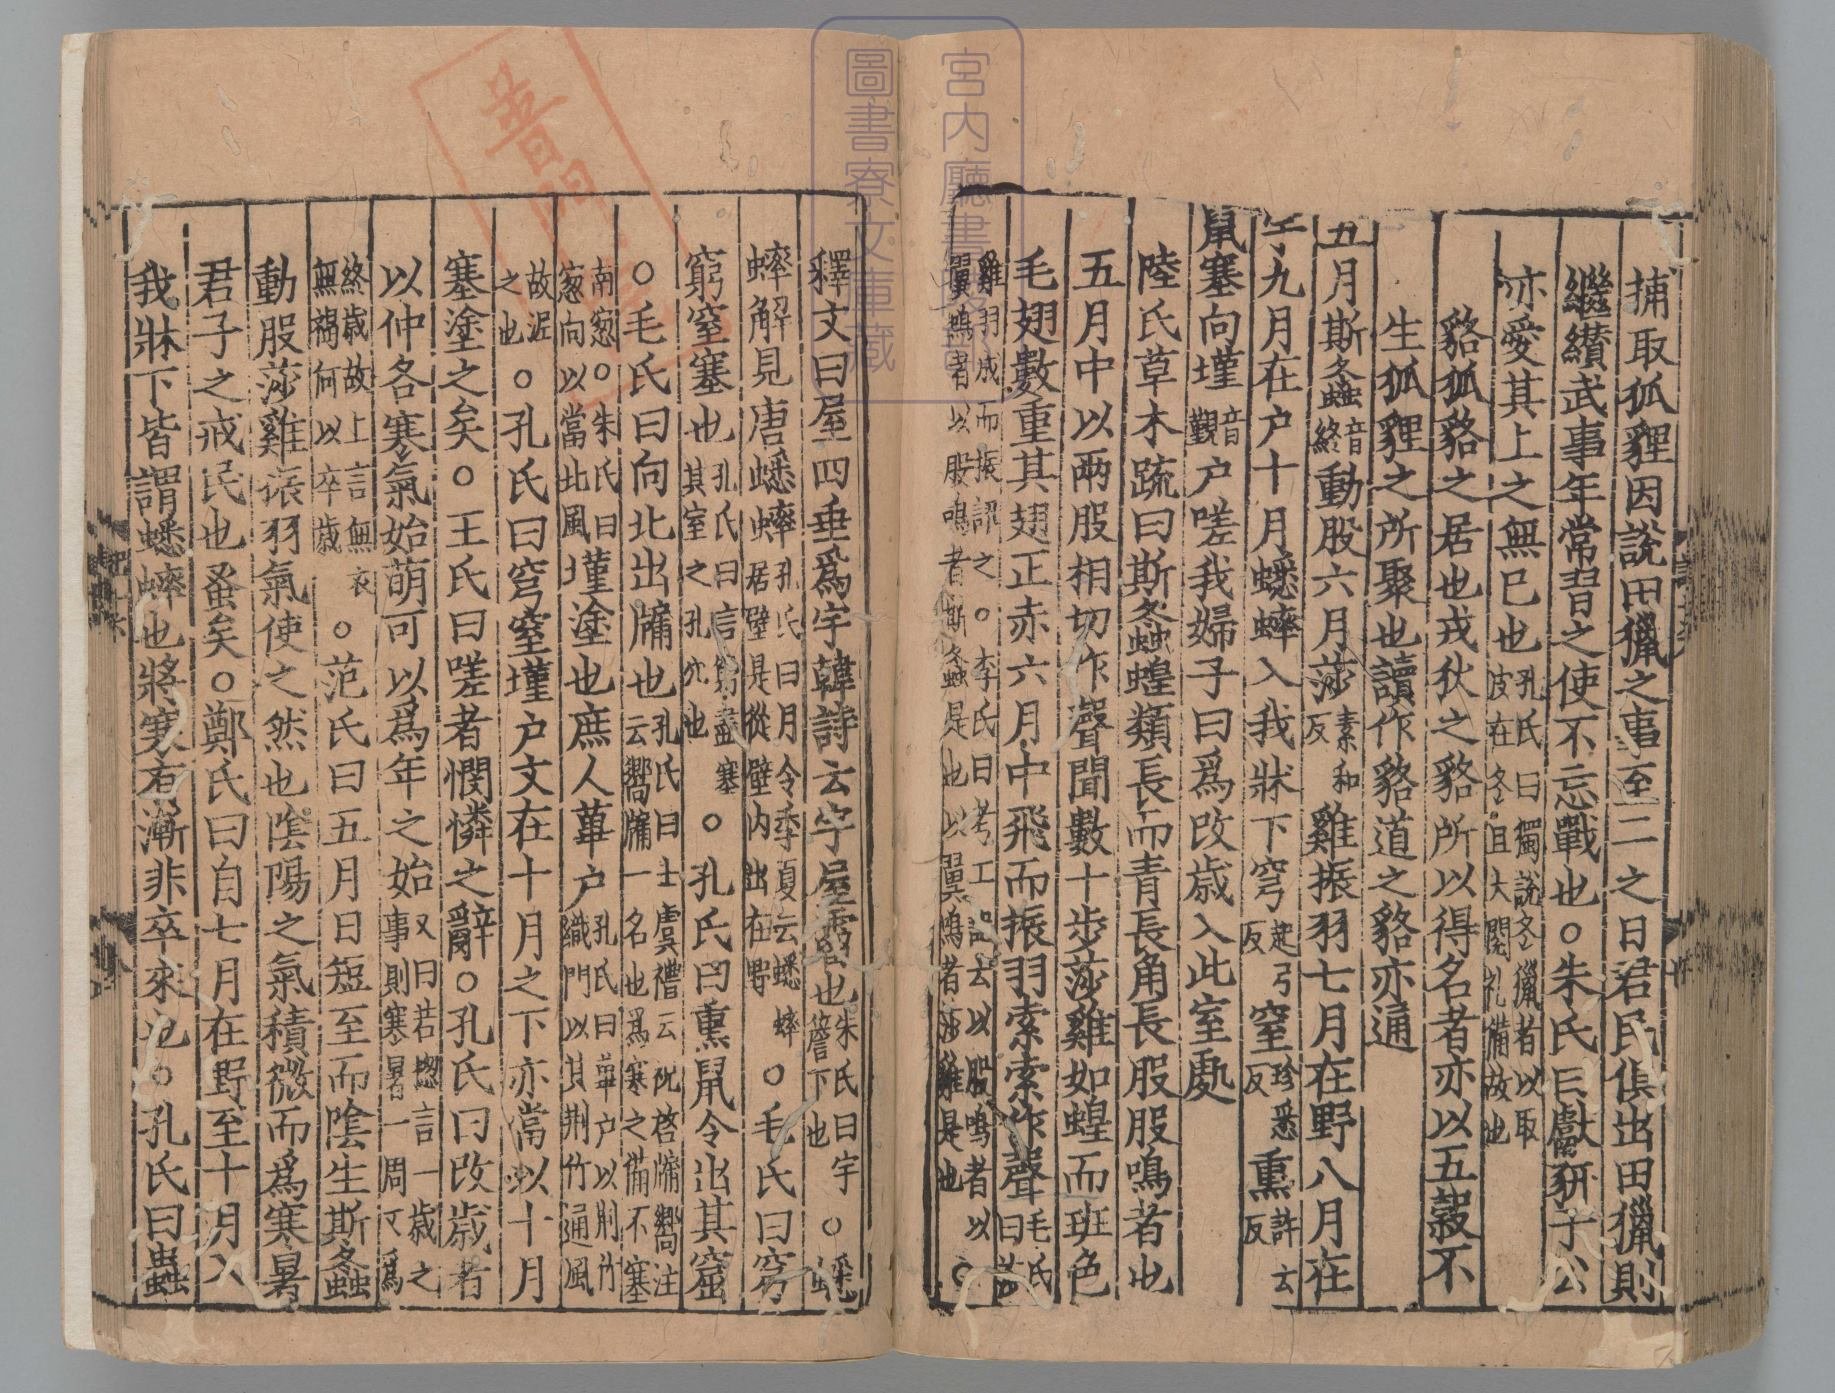 捕取狐貍因說田獵之事至二之日君民俱出田獵則
繼纘武事年常習之使不忘戰也○朱氏曰獻豜于公
亦愛其上之無已也孔氏曰獨說冬獵者以取皮在冬且大閱礼備故也
貉狐貉之居也戎狄之貉所以得名者亦以五穀不
生狐貍之所聚也讀作貉道之貉亦通
五月斯螽音終動股六月莎素和反雞振羽七月在野八月在
宇九月在户十月蟋蟀入我牀下穹起弓反窒珍悉反熏許云反
鼠塞向墐音覲户嗟我婦子曰爲改歳入此室處
陸氏草木疏曰斯螽蝗類長而青長角長股股鳴者也
五月中以兩股相切作聲聞數十步莎雞如蝗而班色
毛翅數重其翅正赤六月中飛而振羽索索作聲毛氏曰莎
雞羽成而振訊之○李氏曰考工記云以股鳴者以翼鳴者以股鳴者斯螽是也以翼鳴者莎雞是也○
釋文曰屋四垂爲宇韓詩云宇屋霤也朱氏曰宇簷下也○蟋
蟀解見唐蟋蟀孔氏曰月令季夏云蟋蟀居壁是從壁内出在野○毛氏曰穹
窮窒塞也孔氏曰言窮盡塞其室之孔穴也○孔氏曰熏鼠令出其窟
○毛氏曰向北出牖也孔氏曰士虞禮云祝啓牖嚮注云嚮牖一名也爲寒之備不塞
南窓○朱氏曰窓向以當北風墐塗也庶人蓽户孔氏曰蓽户以荆竹織門以其荆竹通風
故泥之也○孔氏曰穹窒墐户文在十月之下亦當以十月
塞塗之矣○王氏曰嗟者憫憐之辭○孔氏曰改歳者
以仲冬寒氣始萌可以爲年之始又曰若總言一歳之事則寒暑一周乃爲
終歳故上言無衣無褐何以卒歳○范氏曰五月日短至而陰生斯螽
動股莎雞振羽氣使之然也陰陽之氣積微而爲寒暑
君子之戒民也蚤矣○鄭氏曰自七月在野至十月入
我牀下皆謂蟋蟀也將寒有漸非卒來也○孔氏曰蟲
宮内廳書陵部
圖書寮文庫藏